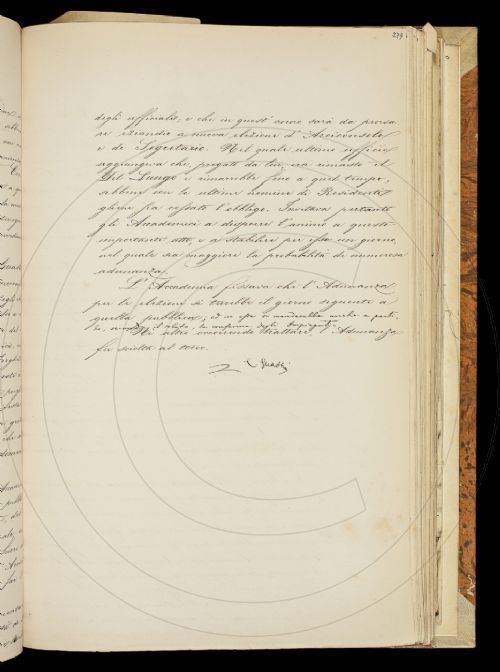 279
degli uffiziali, e che in quest' anno sarà da pensa-
re eziandio a nuova elezione d' Arciconsolo
e di Segretario. Nel quale ultimo ufficio
aggiungeva che, pregato da lui, era rimasto il
Del Lungo e rimarrebbe fino a quel tempo,
sebbene con le ultime nomine di Residenti
gliene sia cessato l'obbligo. Invitava pertanto
gli Accademici a disporre l'animo a questo
importante atto, e a stabilire per esso un giorno,
nel quale sia maggiore la probabilità di numerosa
adunanza.
L' Accademia fissava che l' Adunanza
per le elezioni si tarebbe il giorno seguente a
quella pubblica; ed in essa si
il la conferma degli
Nè altro occorrendo trattare, l' Adunanza
fu sciolta al tocco.